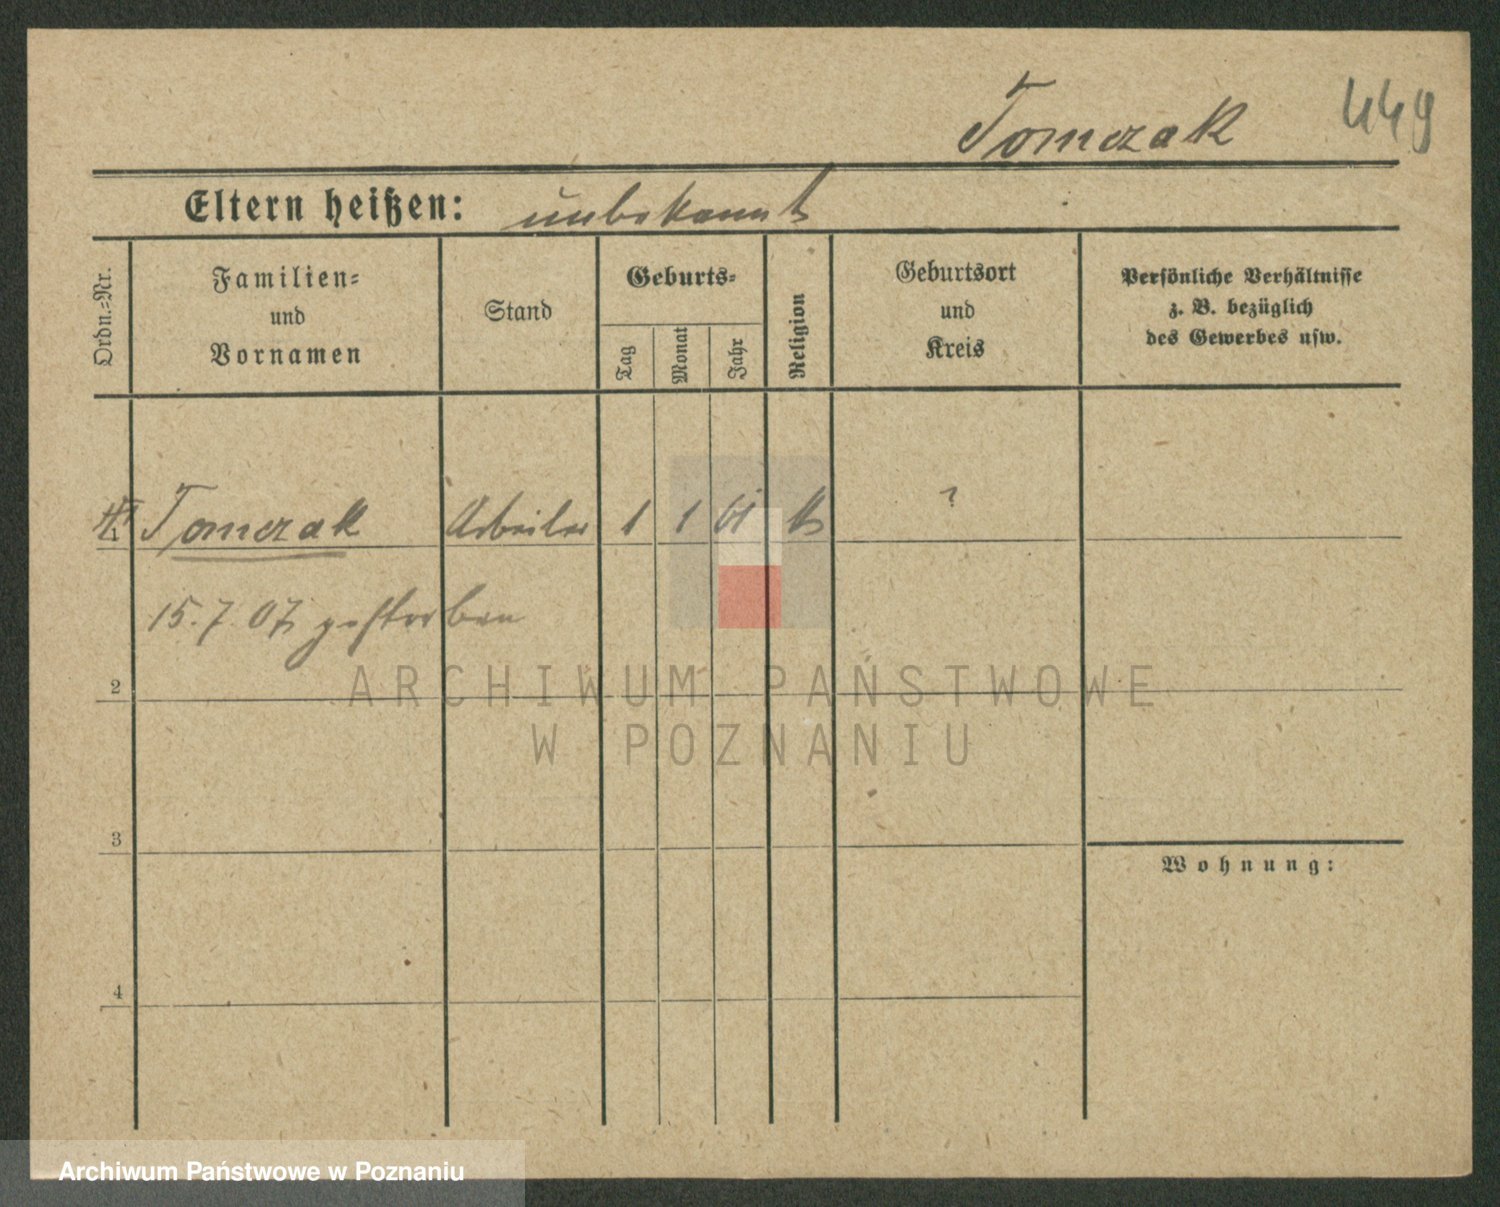 449
Tomczak
Eltern heißen: unbekannt
Ordn.-Nr.
Familien-
und
Vornamen
Stand
Geburts-
Tag
Monat
Jahr
Religion
Geburtsort
und
Kreis
Persönliche Verhältnisse
z. B. bezüglich
des Gewerbes usw.
1 Tomczak Arbeiter 1 1 61 k ?
15.7.07 gestorben
2
3
4
Wohnung:
ARCHIWUM PAŃSTWOWE
W POZNANIU
Archiwum Państwowe w Poznaniu